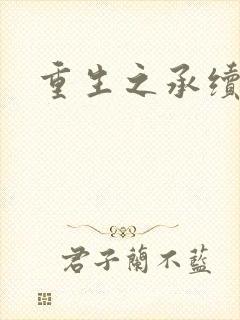 重生之承續
君子蘭不藍